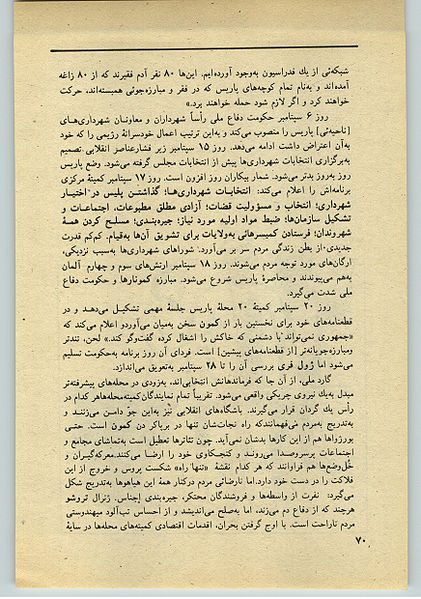 شبکه‌ئی از یك فدراسیون به‌وجود آورده‌ایم. این‌ها ۸۰ نفر آدم فقیرند که از ۸۰ زاغه
آمده‌اند و به‌نام تمام کوچه‌های پاریس که در فقر و مبارزه‌جوئی همبسته‌اند، حرکت
خواهند کرد و اگر لازم شود حمله خواهند برد.»
روز ۶ سپتامبر حکومت دفاع ملی رأساً شهرداران و معاونان شهرداری‌های
[ناحیه‌ئی] پاریس را منصوب می‌کند و به‌این ترتیب اعمال خودسرانهٔ رژیمی را که خود
به‌آن اعتراض داشت ادامه می‌دهد. روز ۱۵ سپتامبر زیر فشار عناصر انقلابی تصمیم
به‌برگزاری انتخابات شهرداری‌ها پیش از انتخابات مجلس گرفته می‌شود. وضع پاریس
روز به‌روز بدتر می‌شود. شمار بیکاران روز افزون است. روز ۱۷ سپتامبر کمیتهٔ مرکزی
برنامه‌اش را اعلام می‌کند: انتخابات شهرداری‌ها؛ گذاشتن پلیس در اختیار
شهرداری؛ انتخاب و مسؤولیت قضات؛ آزادی مطلق مطبوعات، اجتماعات و
تشکیل سازمان‌ها؛ ضبط مواد اولیه مورد نیاز؛ جیره‌بندی؛ مسلح کردن همهٔ
شهروندان؛ فرستادن کمیسرهائی به‌ولایات برای تشویق آن‌ها به‌قیام. کم‌کم قدرت
جدیدی از بطن زندگی مردم سر بر می‌آورد. شوراهای شهرداری‌ها به‌سبب نزدیکی،
ارگان‌های مورد توجه مردم می‌شوند. روز ۱۸ سپتامبر ارتش‌های سوم و چهارم آلمان
به‌هم می‌پیوندند و محاصرهٔ پاریس شروع می‌شود. مبارزه کمونارها و حکومت دفاع
ملی شدت می‌گیرد.
روز ۲۰ سپتامبر کمیتهٔ ۲۰ محلهٔ پاریس جلسهٔ مهمی تشکیل می‌دهد و در
قطعنامه‌های خود برای نخستین بار از کمون سخن به‌میان می‌آورد و اعلام می‌کند که
«جمهوری نمی‌تواند با دشمنی که خاکش را اشغال کرده گفت‌وگو کند.» لحن، تندتر
و مبارزه‌جویانه‌تر [از قطعنامه‌های پیشین] است. فردای آن روز برنامه به‌حکومت تسلیم
می‌شود اما ژول فری بررسی آن را تا ۲۸ سپتامبر به‌تعویق می‌اندازد.
گارد ملی، از آن جا که فرماندهانش انتخابی‌اند، به‌زودی در محله‌های پیشرفته‌تر
مبدل به‌یك نیروی چریکی واقعی می‌شود. تقریباً تمام نمایندگان کمیته‌محله‌ها هر کدام در
رأس یك گردان قرار می‌گیرند. باشگاه‌های انقلابی نیز به‌این جو دامن می‌زنند و
به‌تدریج به‌مردم می‌فهمانند که راه نجات‌شان تنها در برپاکردن کمون است. حتی
بورژواها هم از این کارها بدشان نمی‌آید. چون تئاترها تعطیل است به‌تماشای مجامع و
اجتماعات پرسروصدا می‌روند و کنجکاوی خود را ارضا می‌کنند. معرکه‌گیران و
خُل‌وضع‌ها هم فراوانند که هر کدام نقشهٔ «تنها راه» شکست پروس و خروج از این
فلاکت را در دست خود دارد. اما نارضائی مردم در کنار همهٔ این هیاهوها به‌تدریج شکل
می‌گیرد: نفرت از واسطه‌ها و فروشندگان محتکر، جیره‌بندی اجناس. ژنرال تروشو
هرچند که از دفاع دم می‌زند، اما به‌صلح می‌اندیشد و از احساس تب‌آلود میهندوستی
مردم ناراحت است. با اوج گرفتن بحران، اقدمات اقتصادی کمیته‌های محله‌ها در سایهٔ
۷۰